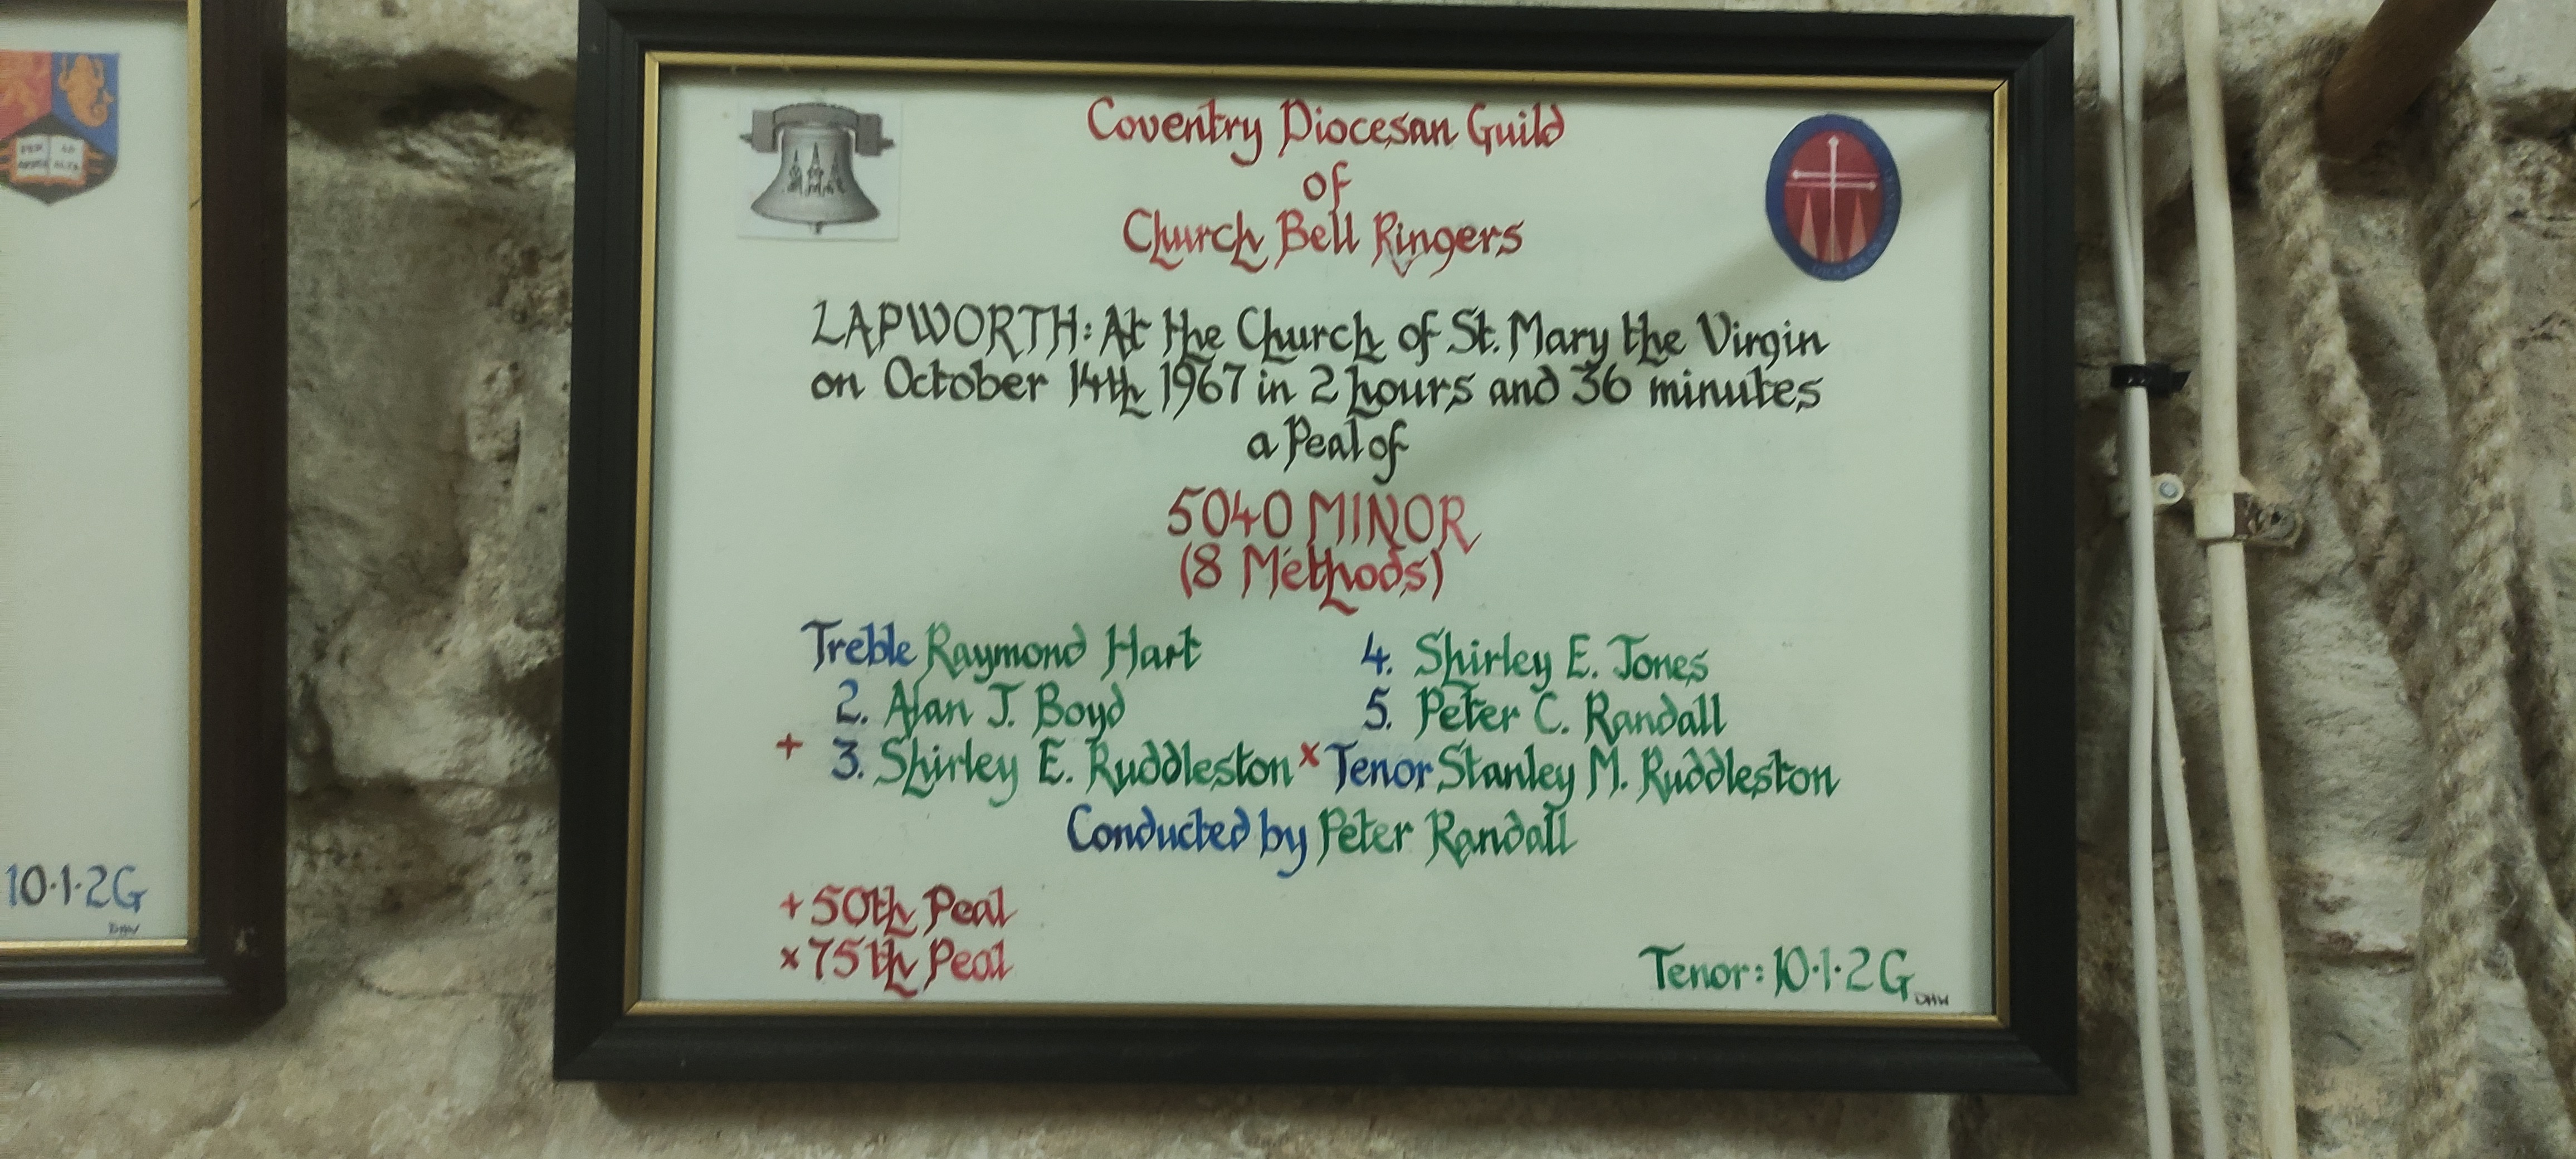 PER AD
ARDUA ALTA
10·1·2G
Coventry Diocesan Guild
of
Church Bell Ringers
DIOCESE
LAPWORTH: At the Church of St. Mary the Virgin
on October 14th 1967 in 2 hours and 36 minutes
a Peal of
5040 MINOR
(8 Methods)
Treble Raymond Hart
2. Alan J. Boyd
+ 3. Shirley E. Ruddleston
4. Shirley E. Jones
5. Peter C. Randall
x Tenor Stanley M. Ruddleston
Conducted by Peter Randall
+ 50th Peal
x 75th Peal
Tenor: 10·1·2 G
DHW